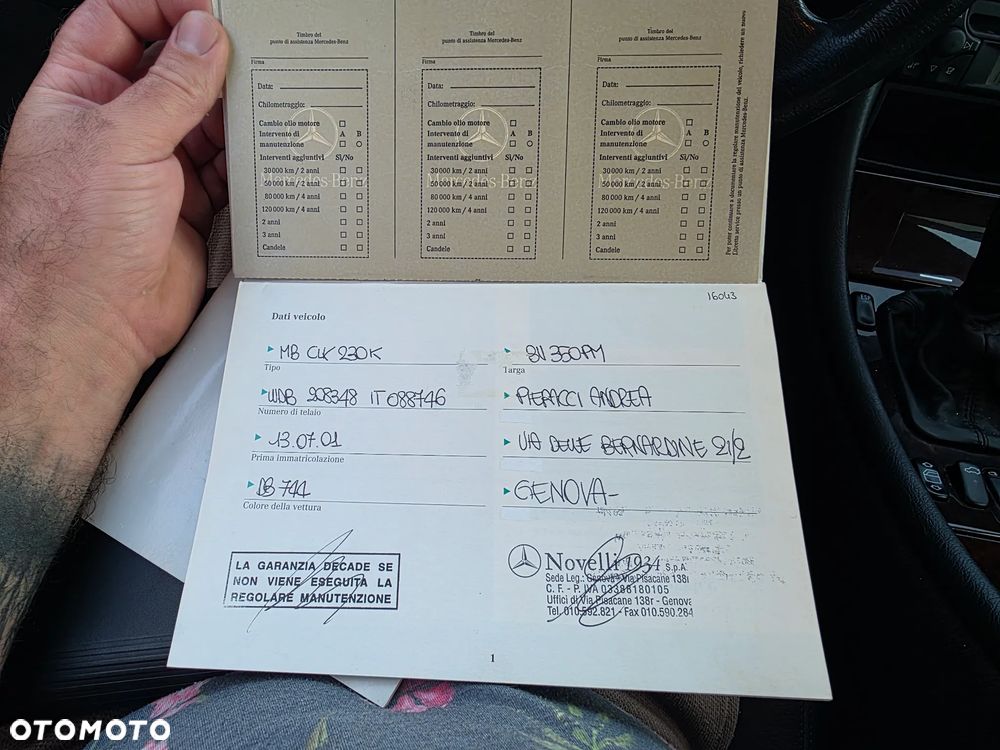 Timbro del
punto di assistenza Mercedes-Benz
Firma
Data:
Chilometraggio:
Cambio olio motore
Intervento di A B
manutenzione
Interventi aggiuntivi Sì/No
30 000 km / 2 anni
50 000 km / 2 anni
80 000 km / 4 anni
120 000 km / 4 anni
2 anni
3 anni
Candele
Mercedes-Benz
Timbro del
punto di assistenza Mercedes-Benz
Firma
Data:
Chilometraggio:
Cambio olio motore
Intervento di A B
manutenzione
Interventi aggiuntivi Sì/No
30 000 km / 2 anni
50 000 km / 2 anni
80 000 km / 4 anni
120 000 km / 4 anni
2 anni
3 anni
Candele
Mercedes-Benz
Timbro del
punto di assistenza Mercedes-Benz
Firma
Data:
Chilometraggio:
Cambio olio motore
Intervento di A B
manutenzione
Interventi aggiuntivi Sì/No
30 000 km / 2 anni
50 000 km / 2 anni
80 000 km / 4 anni
120 000 km / 4 anni
2 anni
3 anni
Candele
Mercedes-Benz
Per poter continuare a documentare la regolare manutenzione del veicolo, richiedere un nuovo
Libretto service presso un punto di assistenza Mercedes-Benz.
16043
Dati veicolo
MB CLK 230K
Tipo
WDB 208348 1T088746
Numero di telaio
13.07.01
Prima immatricolazione
DB 744
Colore della vettura
BV 350PM
Targa
PIERACCI ANDREA
VIA DELLE BERNARDINE 21/2
GENOVA-
LA GARANZIA DECADE SE
NON VIENE ESEGUITA LA
REGOLARE MANUTENZIONE
Novelli 1934 S.p.A.
Sede Leg.: Genova - Via Pisacane 138r
C. F. - P. IVA 03388180105
Uffici di Via Pisacane 138r - Genova
Tel. 010.592.821 - Fax 010.590.284
1
OTOMOTO